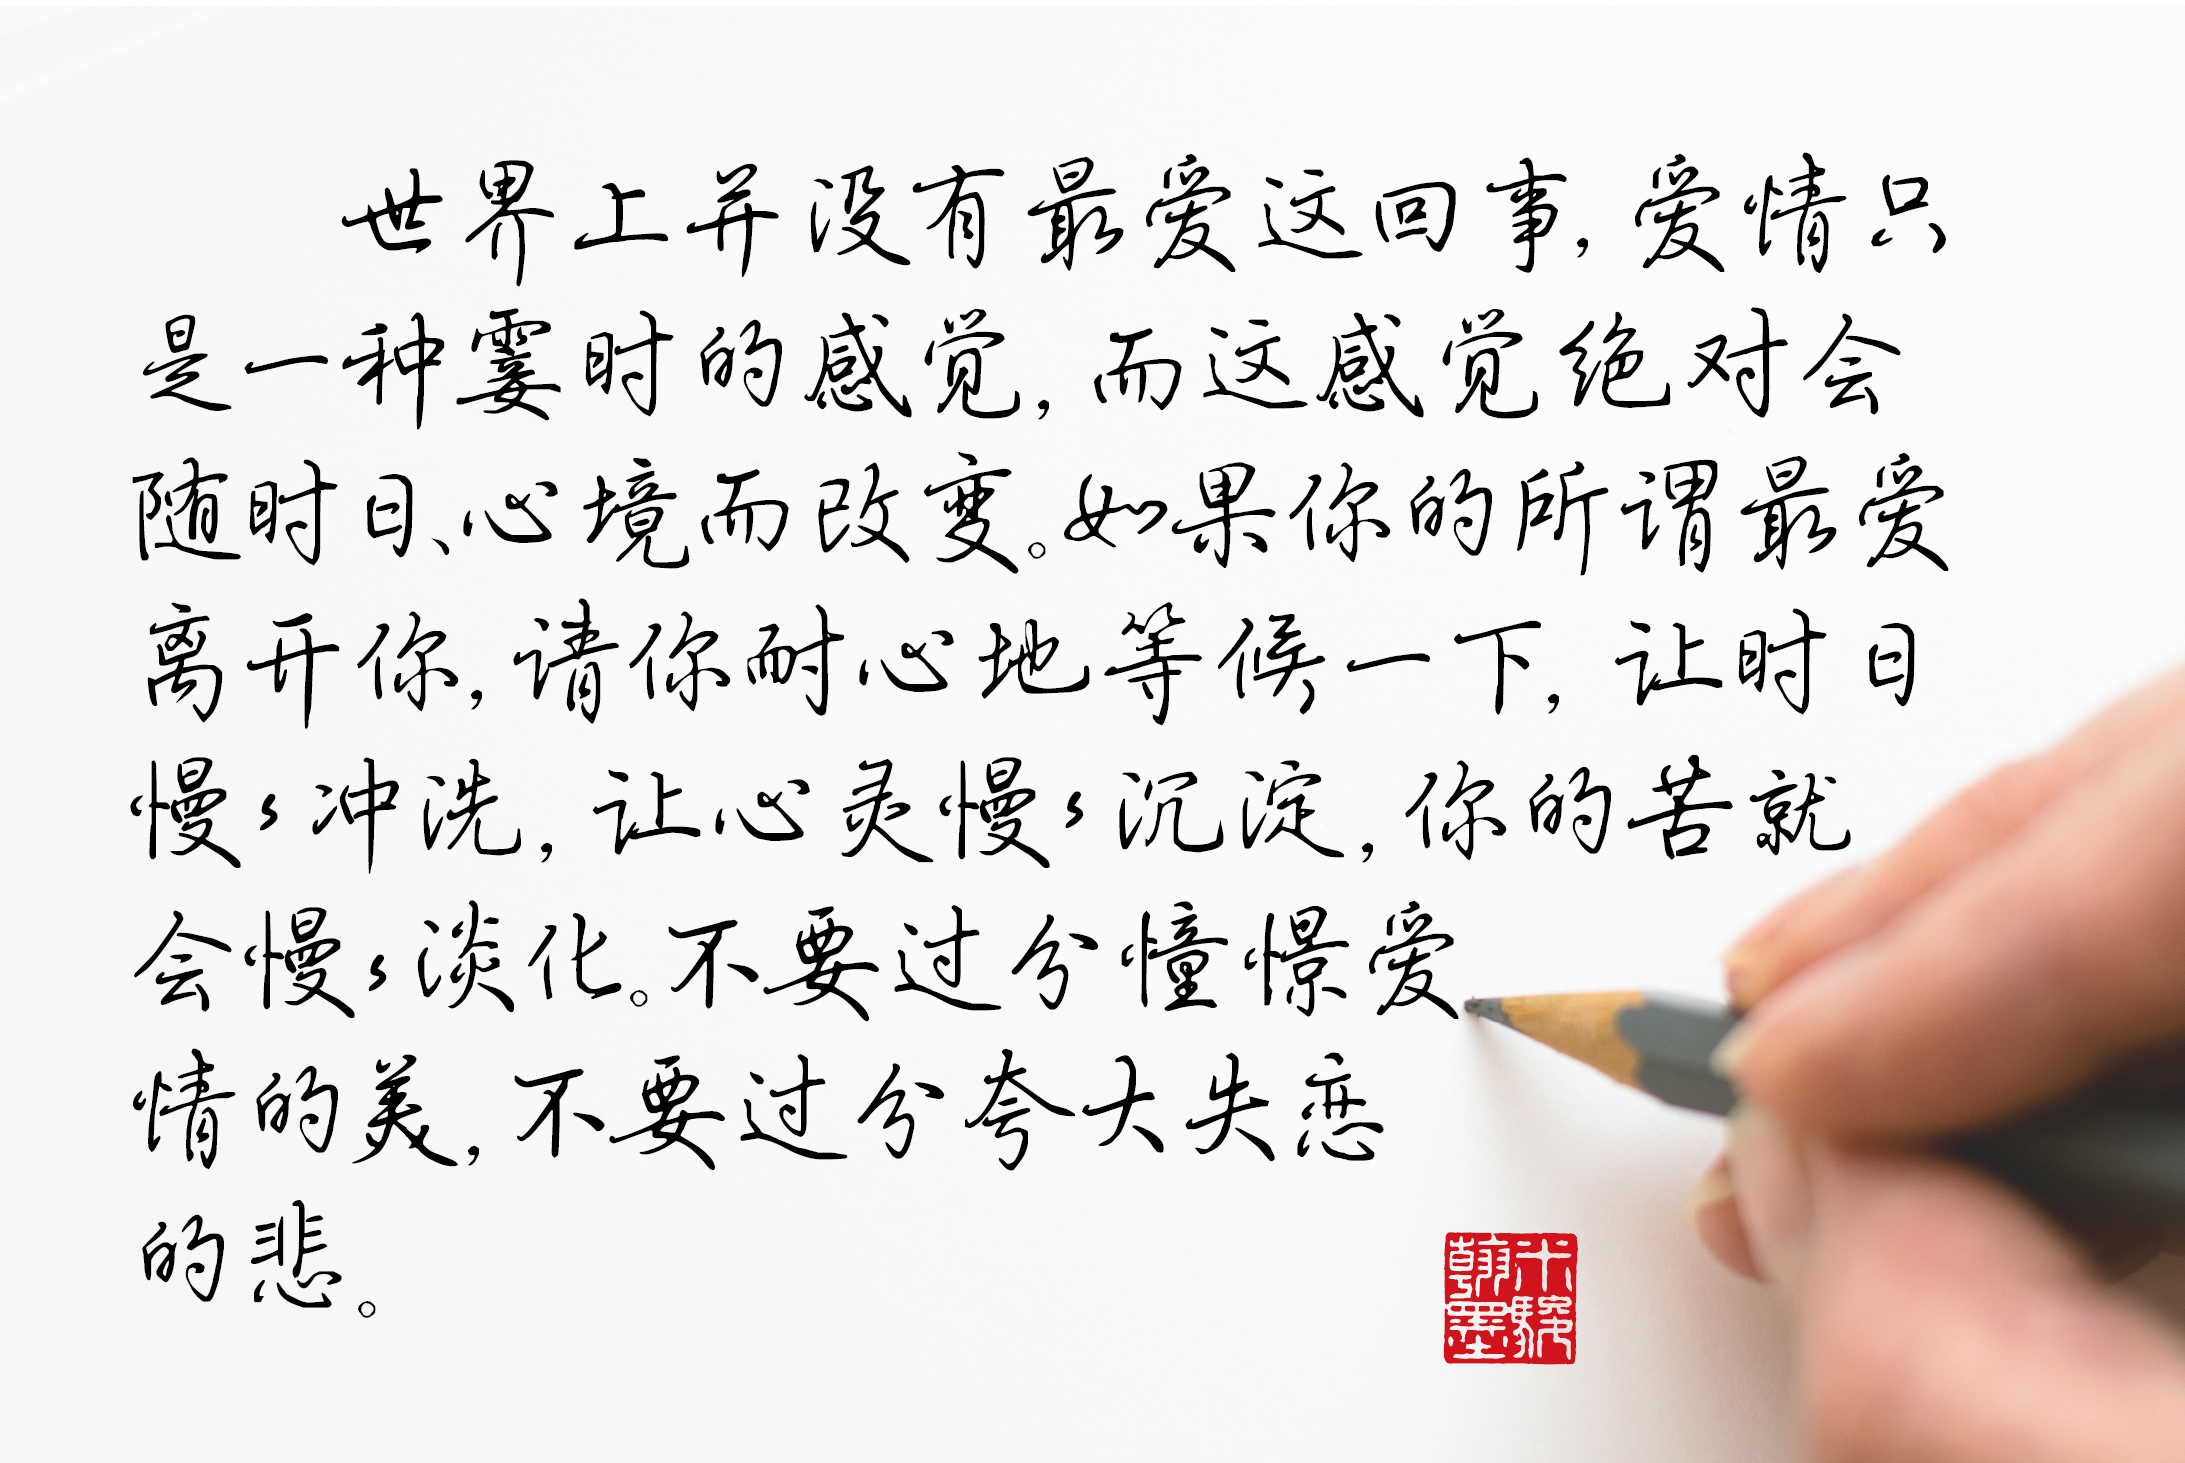 世界上并没有最爱这回事，爱情只
是一种霎时的感觉，而这感觉绝对会
随时日、心境而改变。如果你的所谓最爱
离开你，请你耐心地等候一下，让时日
慢々冲洗，让心灵慢々沉淀，你的苦就
会慢々淡化。不要过分憧憬爱
情的美，不要过分夸大失恋
的悲。
翰墨